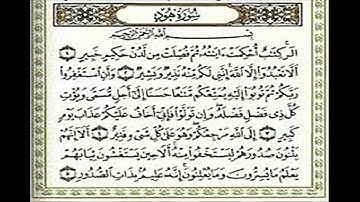 سورة هود
بسم الله الرحمن الرحيم
الر كتب أحكمت ءايته ثم فصلت من لدن حكيم خبير ١
ألا تعبدوا إلا الله إننى لكم منه نذير وبشير ٢ وأن استغفروا
ربكم ثم توبوا إليه يمتعكم متعا حسنا إلى أجل مسمى ويؤت
كل ذى فضل فضله وإن تولوا فإنى أخاف عليكم عذاب يوم
كبير ٣ إلى الله مرجعكم وهو على كل شىء قدير ٤ ألا إنهم
يثنون صدورهم ليستخفوا منه ألا حين يستغشون ثيابهم
يعلم ما يسرون وما يعلنون إنه عليم بذات الصدور ٥